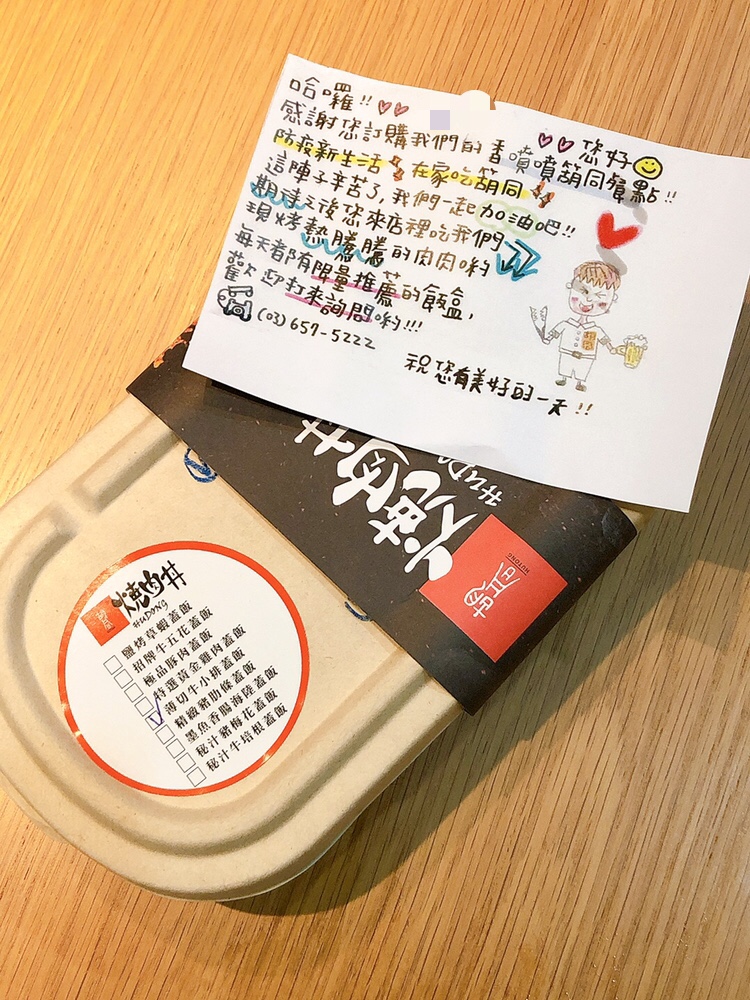 哈囉!! 您好
感謝您訂購我們的香噴噴胡同餐點!!
防疫新生活 在家吃胡同
這陣子辛苦了,我們一起加油吧!!
期待之後您來店裡吃我們
現烤熱騰騰的肉肉喲
每天都有限量推薦的餐盒,
歡迎打來詢問喲!!!
(03)657-5222
祝您有美好的一天!!
燒肉丼
HUDONG
胡同
HUTONG
燒肉丼
HUDONG
鹽烤草蝦蓋飯
招牌牛五花蓋飯
極品豚肉蓋飯
特選黃金雞肉蓋飯
薄切牛小排蓋飯
精緻豬肋條蓋飯
墨魚香腸海陸蓋飯
秘汁豬梅花蓋飯
秘汁牛培根蓋飯